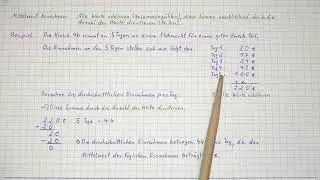 Mittelwert berechnen: Alle Werte addieren (zusammenzählen), diese Summe anschließend durch die
Anzahl der Werte dividieren (teilen)
Beispiel: Die Klasse 4b nimmt an 5 Tagen an einem Flohmarkt für einen guten Zweck teil.
Die Einnahmen an den 5 Tagen stellen sich wie folgt dar:
Tag 1 20€
Tag 2 17€
Tag 3 24€
Tag 4
100€
220€
Berechne die durchschnittlichen Einnahmen pro Tag. Werte addieren
220 Summe durch die Anzahl der Werte dividieren.
220€ : 5 Tage = 44
- 20
20
- 20
0
Die durchschnittlichen Einnahmen betragen 44 € pro Tag, d.h. der
Mittelwert der täglichen Einnahmen beträgt 44 €.